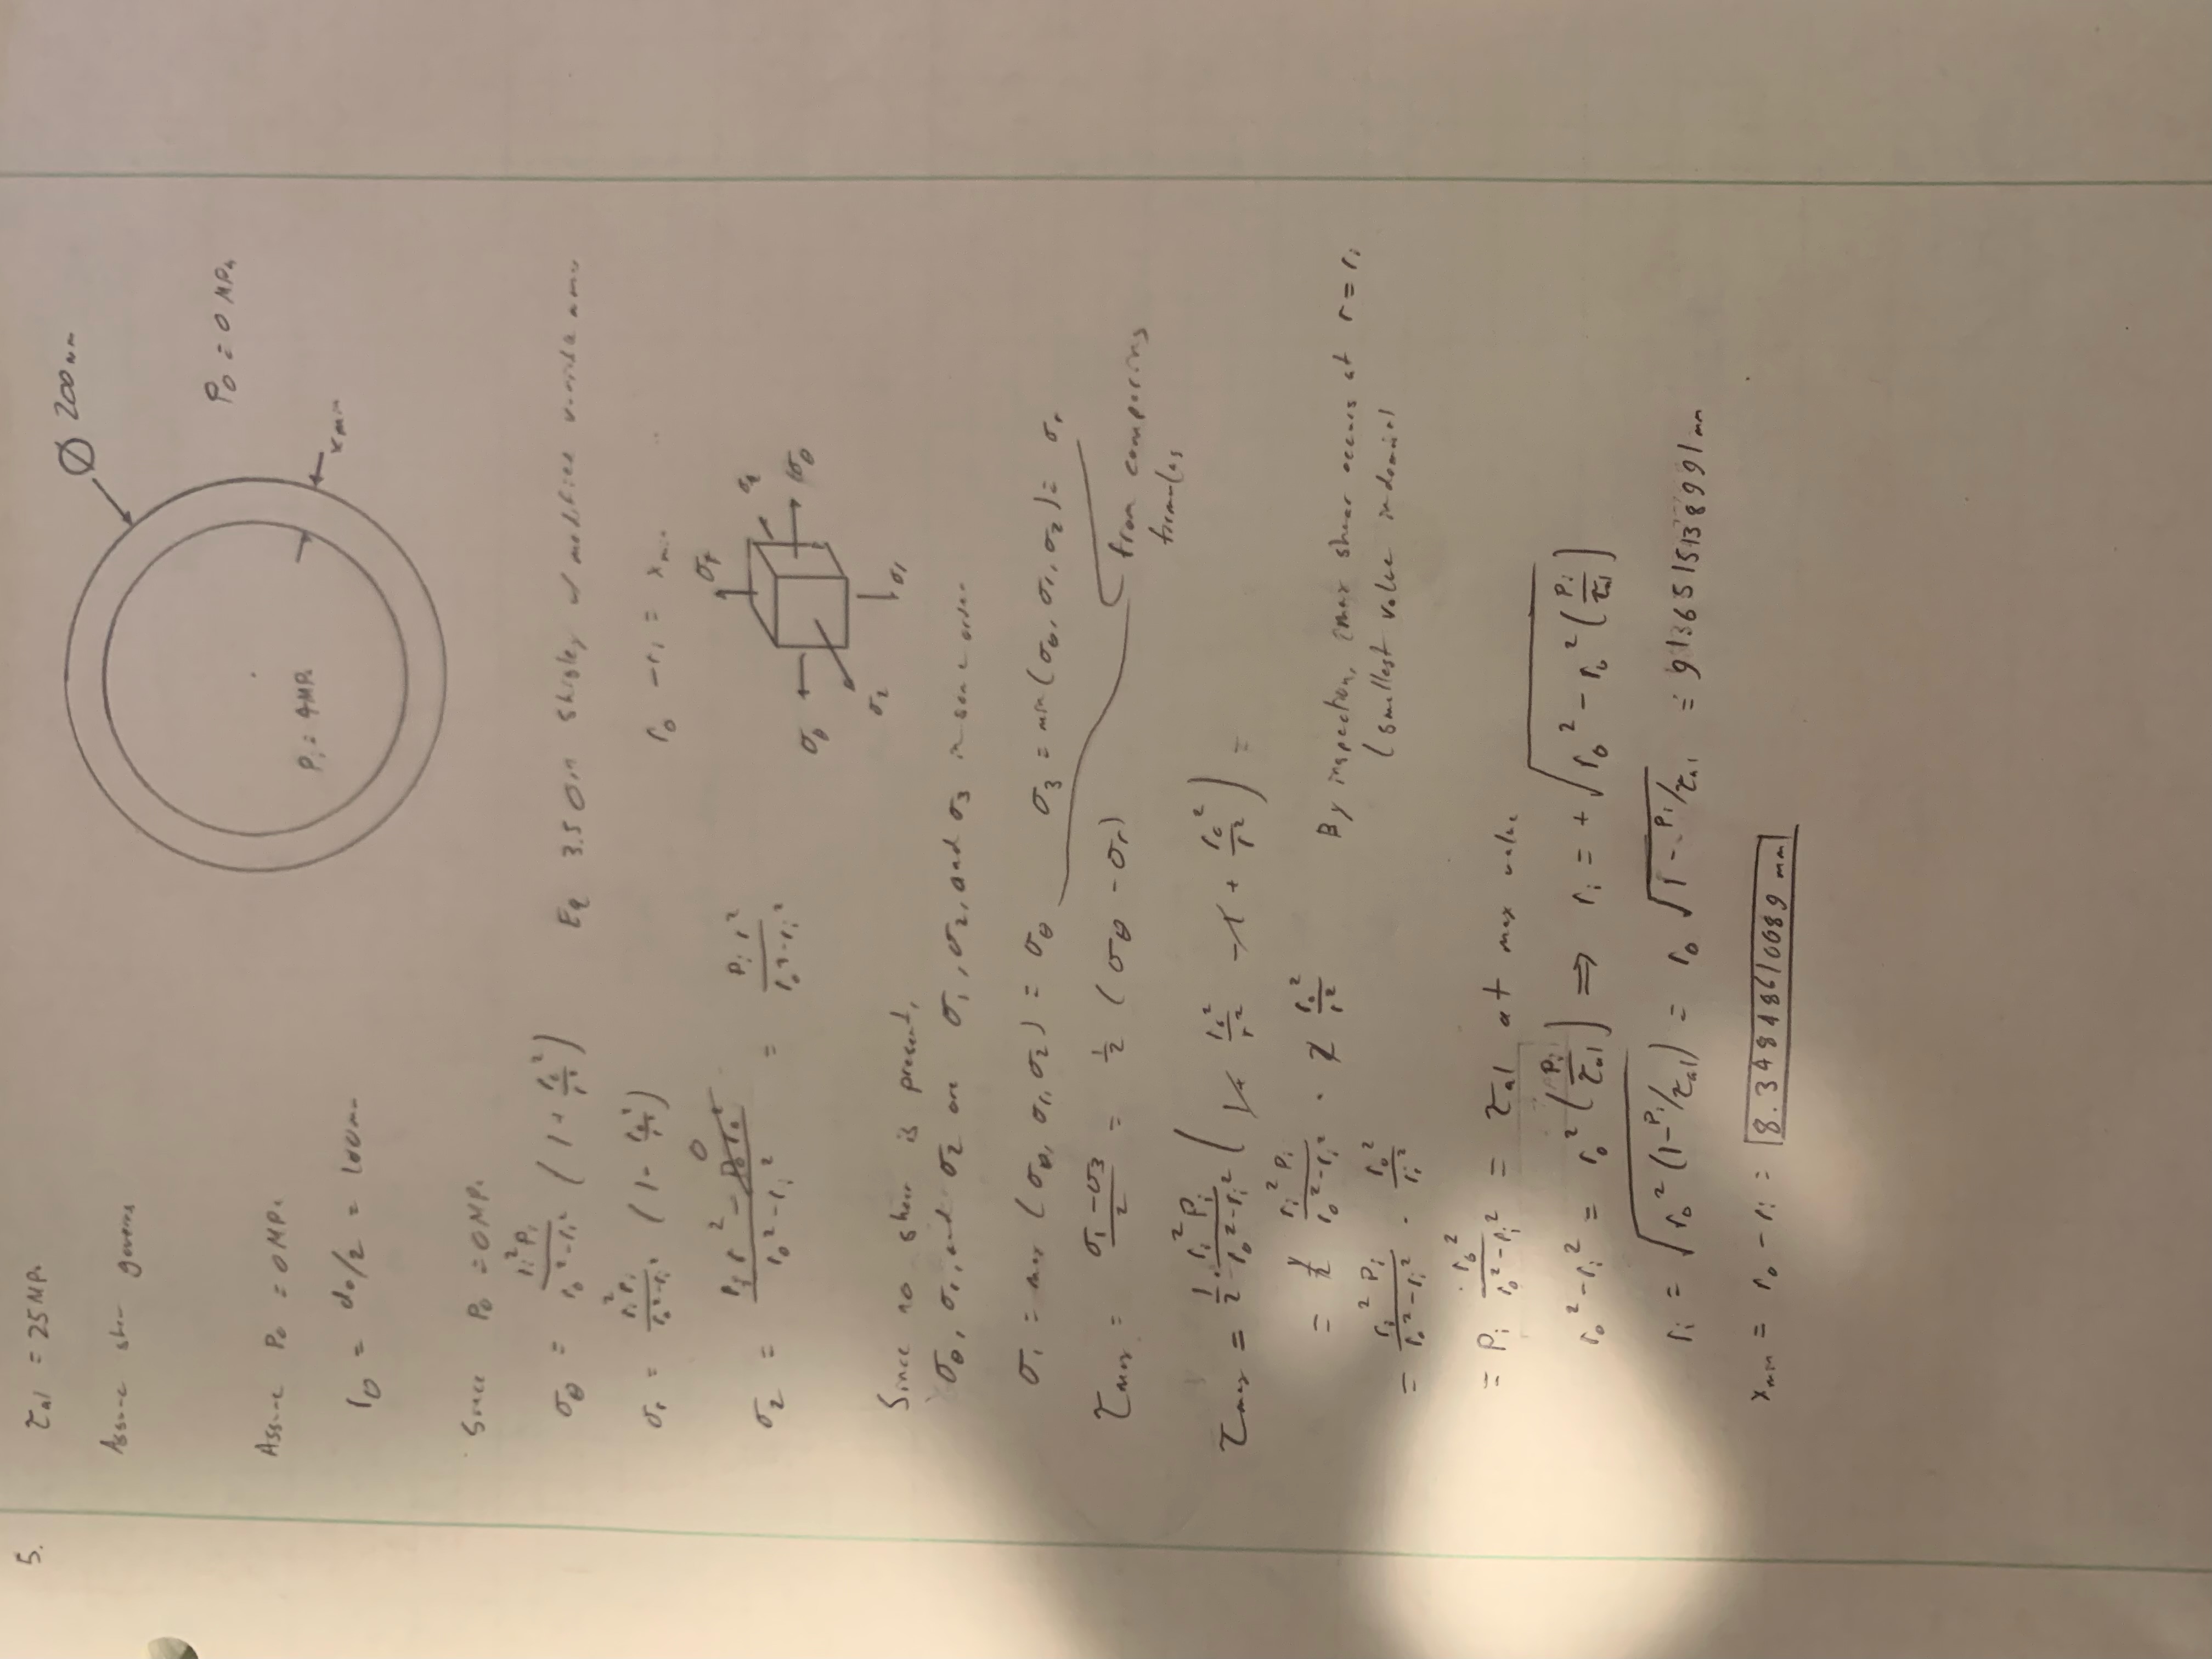 5.
τal = 25 MPa
Ø 200 mm
Assume shear governs
P0 = 0 MPa
Assume P0 = 0 MPa
Pi = 4 MPa
xmin
r0 = d0/2 = 100 mm
Since P0 = 0 MPa
σθ = ri²Pi/(r0²-ri²) (1 + r0²/r²) Eq 3.50 in Shigley w/ modified variable names
σr = ri²Pi/(r0²-ri²) (1 - r0²/r²) r0 - ri = xmin
σz = (Pi r² - P0 r0²)/(r0² - ri²) = Pi r²/(r0²-ri²)
0
σr
σz
σθ
σθ
σz
σr
Since no shear is present,
σθ, σr, and σz are σ1, σ2, and σ3 in some order
σ1 = max (σθ, σr, σz) = σθ σ3 = min (σθ, σr, σz) = σr
τmax = (σ1 - σ3)/2 = 1/2 (σθ - σr)
from comparing
formulas
τmax = 1/2 · ri²Pi/(r0²-ri²) (1 + r0²/r² - 1 + r0²/r²) =
= 1/2 ri²Pi/(r0²-ri²) · 2 r0²/r² By inspection, max shear occurs at r = ri
= ri²Pi/(r0²-ri²) · r0²/ri² (smallest value in domain)
= Pi r0²/(r0²-ri²) = τal at max value
r0² - ri² = r0² (Pi/τal) ⇒ ri = + √(r0² - r0² (Pi/τal))
ri = √(r0² (1 - Pi/τal)) = r0 √(1 - Pi/τal) = 91.6515138991 mm
xmin = r0 - ri = 8.34848610089 mm